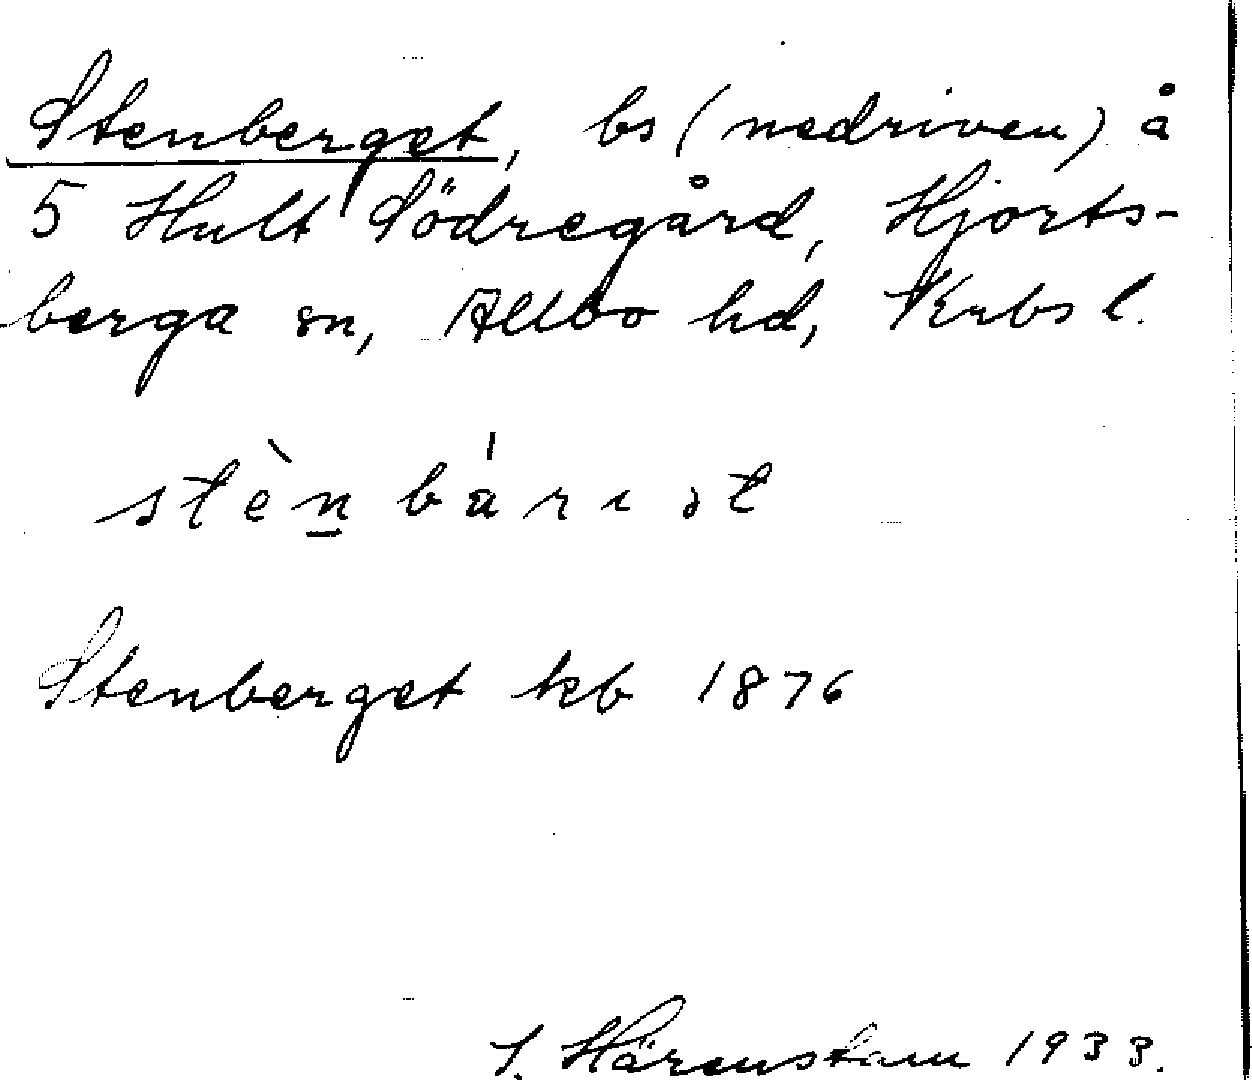 Stenberget, bs (nedriven) å
5 Hult Södregård, Hjorts-
berga sn, Allbo hd, Krbs l.
stèn bárıət
Stenberget kb 1876
S. Härenstam 1933.